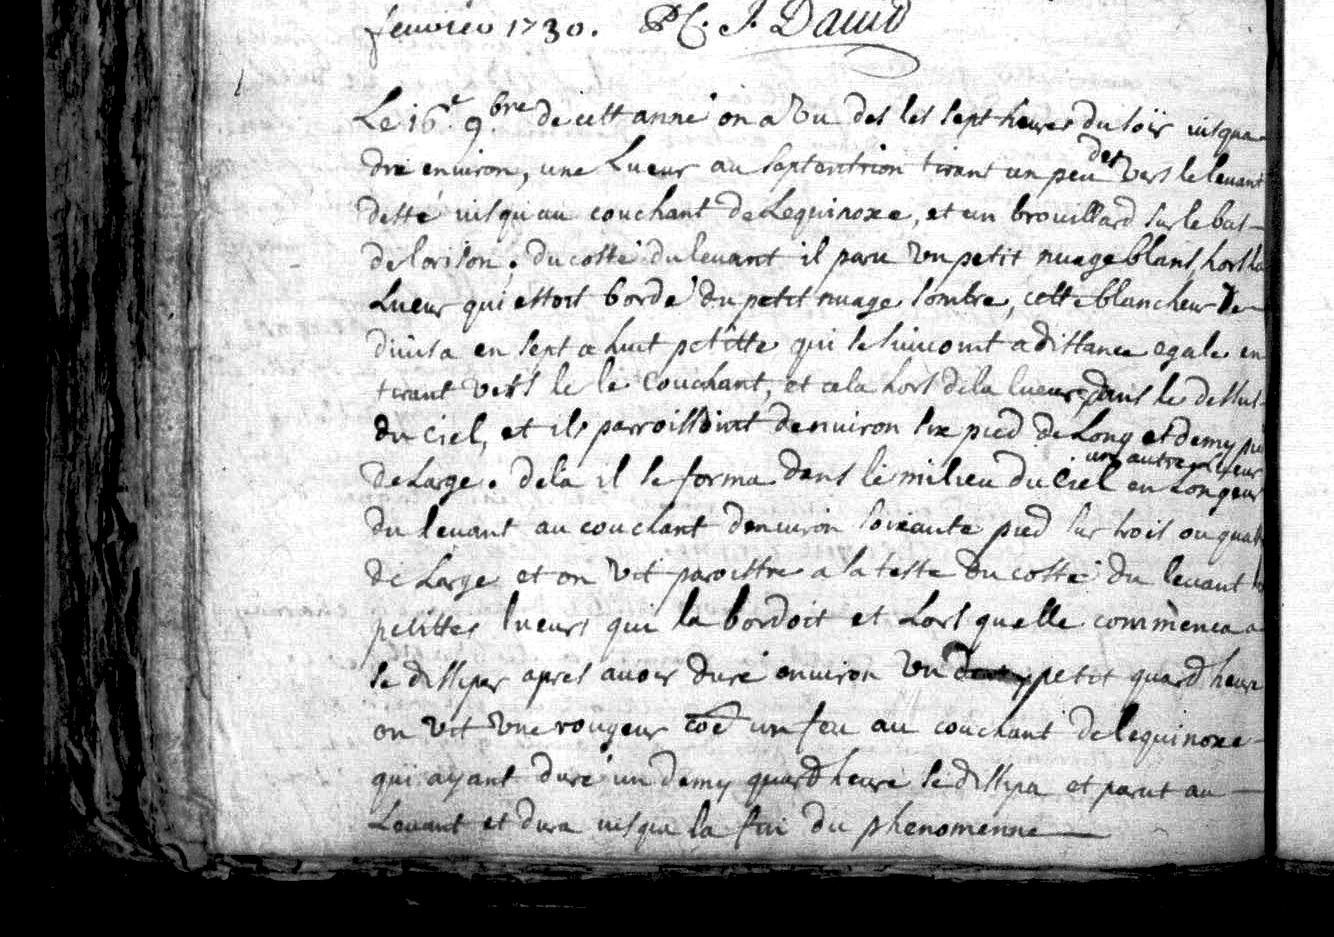 feuvrier 1730. P C. J. David
Le 16e. 9bre de cett anné on a vu des les sept heures du soir iusqua
dix environ, une Lueur au septentrion tirant un peu des vers le levant
desté iusqu au couchant de Lequinoxe, et un brouillard sur le bas
de lorison. du costé du levant il paru un petit nuage blans, hors la
Lueur qui estoit bordé du petit nuage sombre, cette blancheur se
divisa en sept a huit petitte qui se suivoint a distance egale en
tirant vers le le Couchant, et cela hors dela lueur, dans le dessus
du Ciel, et ils parroissoint denviron six pied de Long et demy pie
de Large. dela il se forma dans le milieu du Ciel un autre lueur en Longeur
du levant au couchant denviron soixante pied sur trois ou quatre
de Large et on vit paroittre a la teste du costé du levant
petittes lueurs qui la bordoit et Lors quelle commenca a
se dissiper apres avoir duré environ un petit quard heure
on vit une rougeur coe un feu au couchant de lequinoxe
qui ayant duré un demy quard heure se dissipa et parut au
Levant et dura iusqua la fin du phenomenne